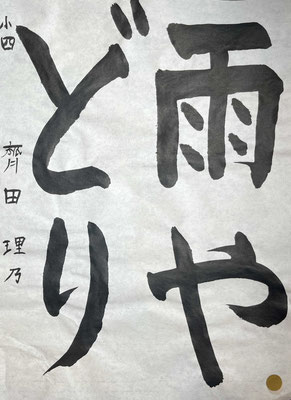 雨や
どり
小四 齊田 理乃